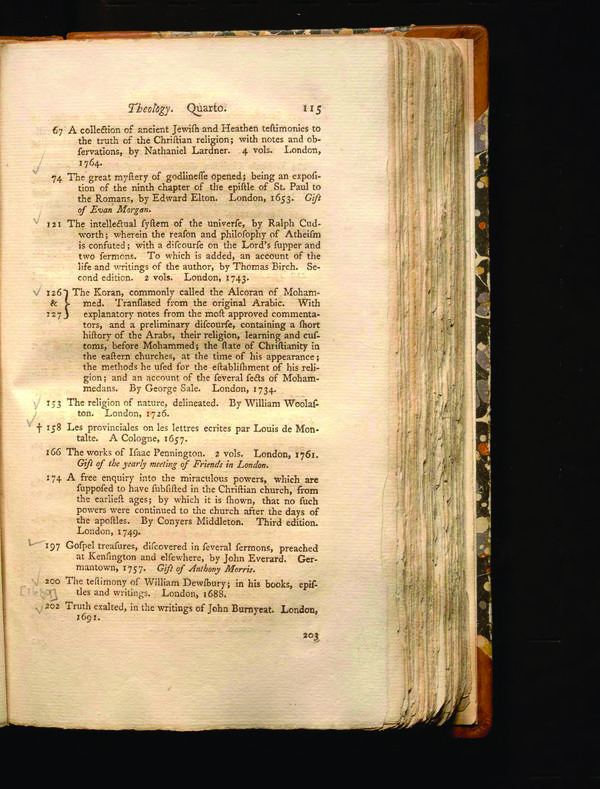 Theology. Quarto. 115
67 A collection of ancient Jewiſh and Heathen teſtimonies to
the truth of the Chriſtian religion; with notes and ob-
ſervations, by Nathaniel Lardner. 4 vols. London,
1764.
74 The great myſtery of godlineſſe opened; being an expoſi-
tion of the ninth chapter of the epiſtle of St. Paul to
the Romans, by Edward Elton. London, 1653. Gift
of Evan Morgan.
121 The intellectual ſyſtem of the univerſe, by Ralph Cud-
worth; wherein the reaſon and philoſophy of Atheiſm
is confuted; with a diſcourſe on the Lord's ſupper and
two ſermons. To which is added, an account of the
life and writings of the author, by Thomas Birch. Se-
cond edition. 2 vols. London, 1743.
126 } The Koran, commonly called the Alcoran of Moham-
& med. Tranſlated from the original Arabic. With
127 explanatory notes from the moſt approved commenta-
tors, and a preliminary diſcourſe, containing a ſhort
hiſtory of the Arabs, their religion, learning and cuſ-
toms, before Mohammed; the ſtate of Chriſtianity in
the eaſtern churches, at the time of his appearance;
the methods he uſed for the eſtabliſhment of his reli-
gion; and an account of the ſeveral ſects of Moham-
medans. By George Sale. London, 1734.
153 The religion of nature, delineated. By William Woolaſ-
ton. London, 1726.
† 158 Les provinciales on les lettres ecrites par Louis de Mon-
talte. A Cologne, 1657.
166 The works of Iſaac Pennington. 2 vols. London, 1761.
Gift of the yearly meeting of Friends in London.
174 A free enquiry into the miraculous powers, which are
ſuppoſed to have ſubſiſted in the Chriſtian church, from
the earlieſt ages; by which it is ſhown, that no ſuch
powers were continued to the church after the days of
the apoſtles. By Conyers Middleton. Third edition.
London, 1749.
197 Goſpel treaſures, diſcovered in ſeveral ſermons, preached
at Kenſington and elſewhere, by John Everard. Ger-
mantown, 1757. Gift of Anthony Morris.
200 The teſtimony of William Dewſbury; in his books, epiſ-
[1689] tles and writings. London, 1688.
202 Truth exalted, in the writings of John Burnyeat. London,
1691.
203